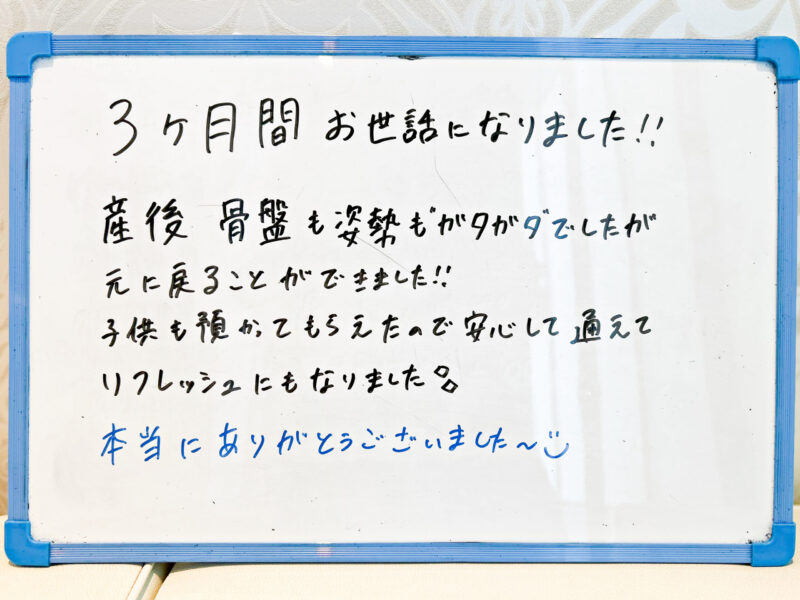 3ヶ月間 お世話になりました!!
産後 骨盤も姿勢もガタガダでしたが
元に戻ることができました!!
子供も預かってもらえたので安心して通えて
リフレッシュにもなりました。
本当にありがとうございました〜